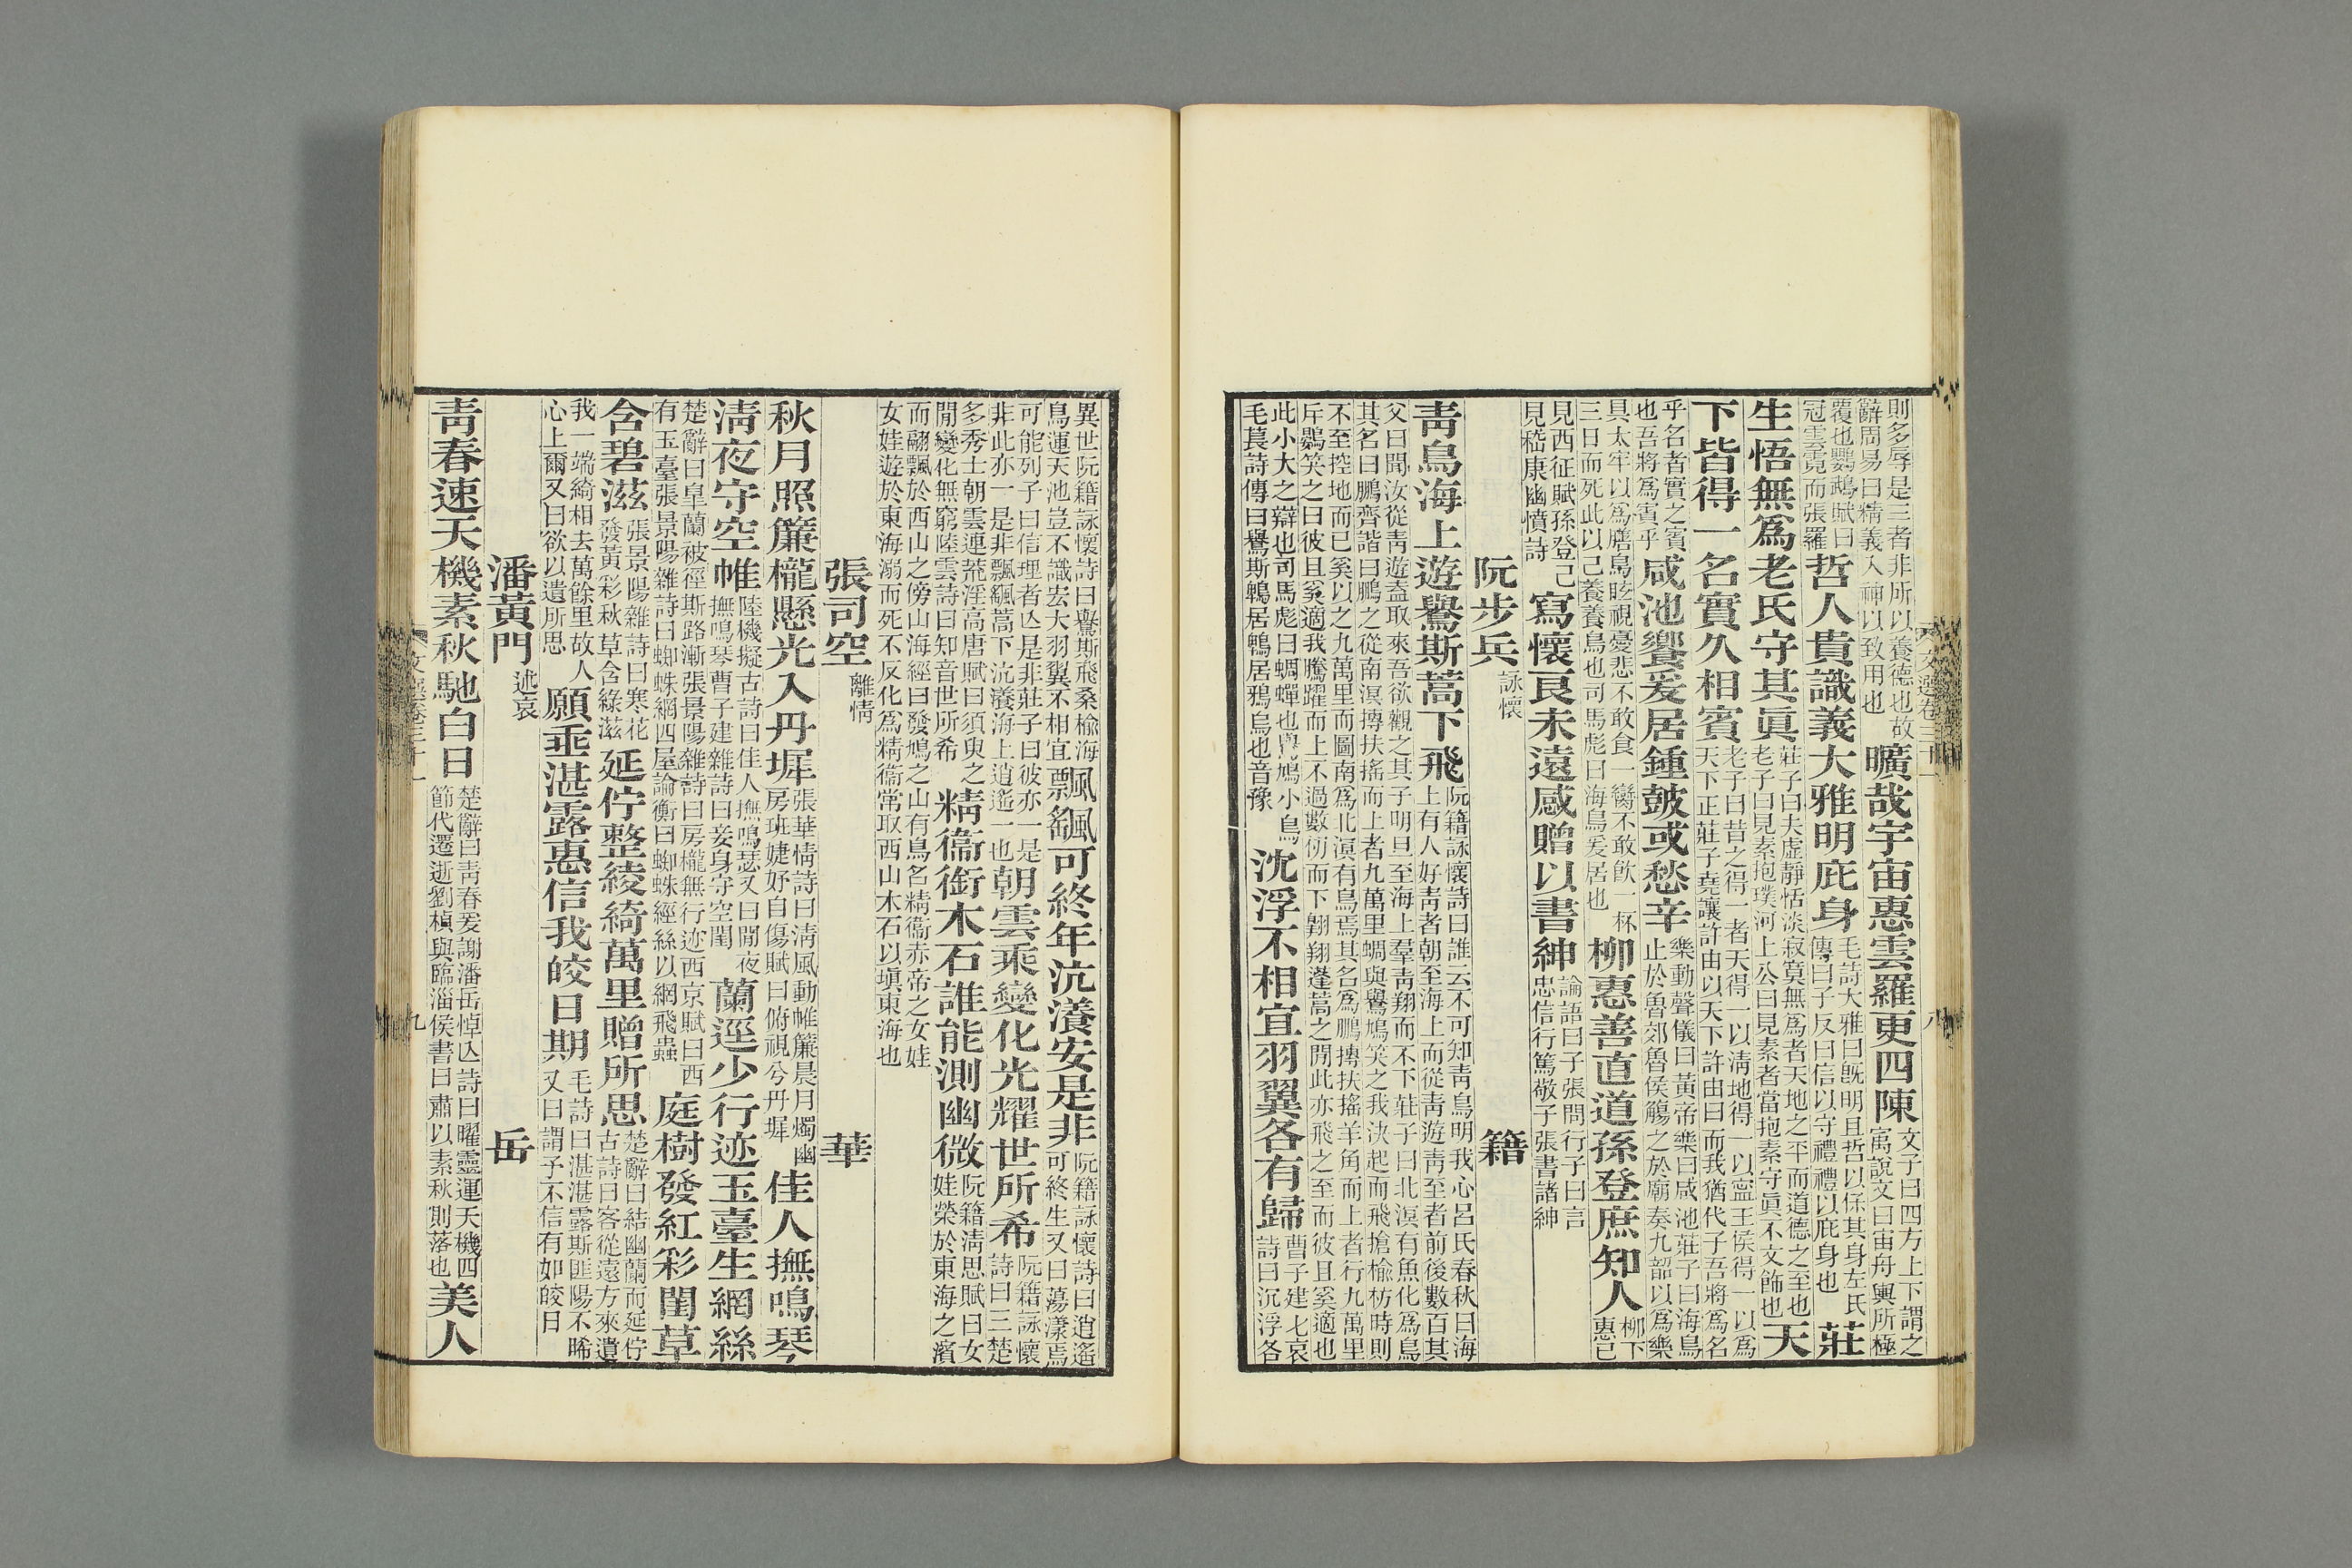 則多辱是三者非所以養德也故
辭周易曰精義入神以致用也
曠哉宇宙惠雲羅更四陳
文子曰四方上下謂之
寓說文曰宙舟輿所極
覆也鸚鵡賦曰
冠雲霓而張羅
哲人貴識義大雅明庇身
毛詩大雅曰旣明且哲以保其身左氏
傳曰子反曰信以守禮禮以庇身也
莊
生悟無爲老氏守其眞
莊子曰夫虛靜恬淡寂寞無爲者天地之平而道德之至也
老子曰見素抱璞河上公曰見素者當抱素守眞不文飾也
天
下皆得一名實久相賓
老子曰昔之得一者天得一以淸地得一以寍王侯得一以爲
天下正莊子堯讓許由以天下許由曰而我猶代子吾將爲名
乎名者實之賓
也吾將爲賓乎
咸池饗爰居鍾鼓或愁辛
樂動聲儀曰黃帝樂曰咸池莊子曰海鳥
止於魯郊魯侯觴之於廟奏九韶以爲樂
具太牢以爲膳鳥眩視憂悲不敢食一臠不敢飮一杯
三日而死此以己養養鳥也司馬彪曰海鳥爰居也
柳惠善直道孫登庶知人
柳下
惠已
見西征賦孫登己
見嵇康幽憤詩
寫懷良未遠感贈以書紳
論語曰子張問行子曰言
忠信行篤敬子張書諸紳
阮步兵 詠懷 籍
靑鳥海上遊鸒斯蒿下飛
阮籍詠懷詩曰誰云不可知靑鳥明我心呂氏春秋曰海
上有人好靑者朝至海上而從靑遊靑至者前後數百其
父曰聞汝從靑遊盍取來吾欲觀之其子明旦至海上羣靑翔而不下莊子曰北溟有魚化爲鳥
其名曰鵬齊諧曰鵬之從南溟摶扶搖而上者九萬里蜩與鸒鳩笑之我決起而飛搶楡枋時則
不至控地而已奚以之九萬里而圖南爲北溟有鳥焉其名爲鵬摶扶搖羊角而上者行九萬里
斥鷃笑之曰彼且奚適我騰躍而上不過數仞而下翺翔蓬蒿之閒此亦飛之至而彼且奚適也
此小大之辯也司馬彪曰蜩蟬也鸒鳩小鳥
毛萇詩傳曰鸒斯鵯居鵯居鴉烏也音豫
沈浮不相宜羽翼各有歸
曹子建七哀
詩曰沉浮各
異世阮籍詠懷詩曰鸒斯飛桑楡海
鳥運天池豈不識宏大羽翼不相宜
飄颻可終年沆瀁安是非
阮籍詠懷詩曰逍遙
可終生又曰蕩漾焉
可能列子曰信理者亾是非莊子曰彼亦一是
非此亦一是非飄颻蒿下沆瀁海上逍遙一也
朝雲乘變化光耀世所希
阮籍詠懷
詩曰三楚
多秀士朝雲連荒淫高唐賦曰須臾之
閒變化無窮陸雲詩曰知音世所希
精衞銜木石誰能測幽微
阮籍淸思賦曰女
娃榮於東海之濱
而翩飄於西山之傍山海經曰發鳩之山有鳥名精衞赤帝之女娃
女娃遊於東海溺而死不反化爲精衞常取西山木石以塡東海也
張司空 離情 華
秋月照簾櫳懸光入丹墀
張華情詩曰淸風動帷簾晨月燭幽
房班婕妤自傷賦曰俯視兮丹墀
佳人撫鳴琴
淸夜守空帷
陸機擬古詩曰佳人撫鳴瑟又曰閒夜
撫鳴琴曹子建雜詩曰妾身守空閨
蘭逕少行迹玉臺生網絲
楚辭曰皐蘭被徑斯路漸張景陽雜詩曰房櫳無行迹西京賦曰西
有玉臺張景陽雜詩曰蜘蛛網四屋論衡曰蜘蛛經絲以網飛蟲
庭樹發紅彩閨草
含碧滋
張景陽雜詩曰寒花
發黃彩秋草含綠滋
延佇整綾綺萬里贈所思
楚辭曰結幽蘭而延佇
古詩曰客從遠方來遺
我一端綺相去萬餘里故人
心上爾又曰欲以遺所思
願垂湛露惠信我皎日期
毛詩曰湛湛露斯匪陽不晞
又曰謂予不信有如皎日
潘黃門 述哀 岳
靑春速天機素秋馳白日
楚辭曰靑春爰謝潘岳悼亾詩曰曜靈運天機四
節代遷逝劉楨與臨淄侯書曰肅以素秋則落也
美人
九